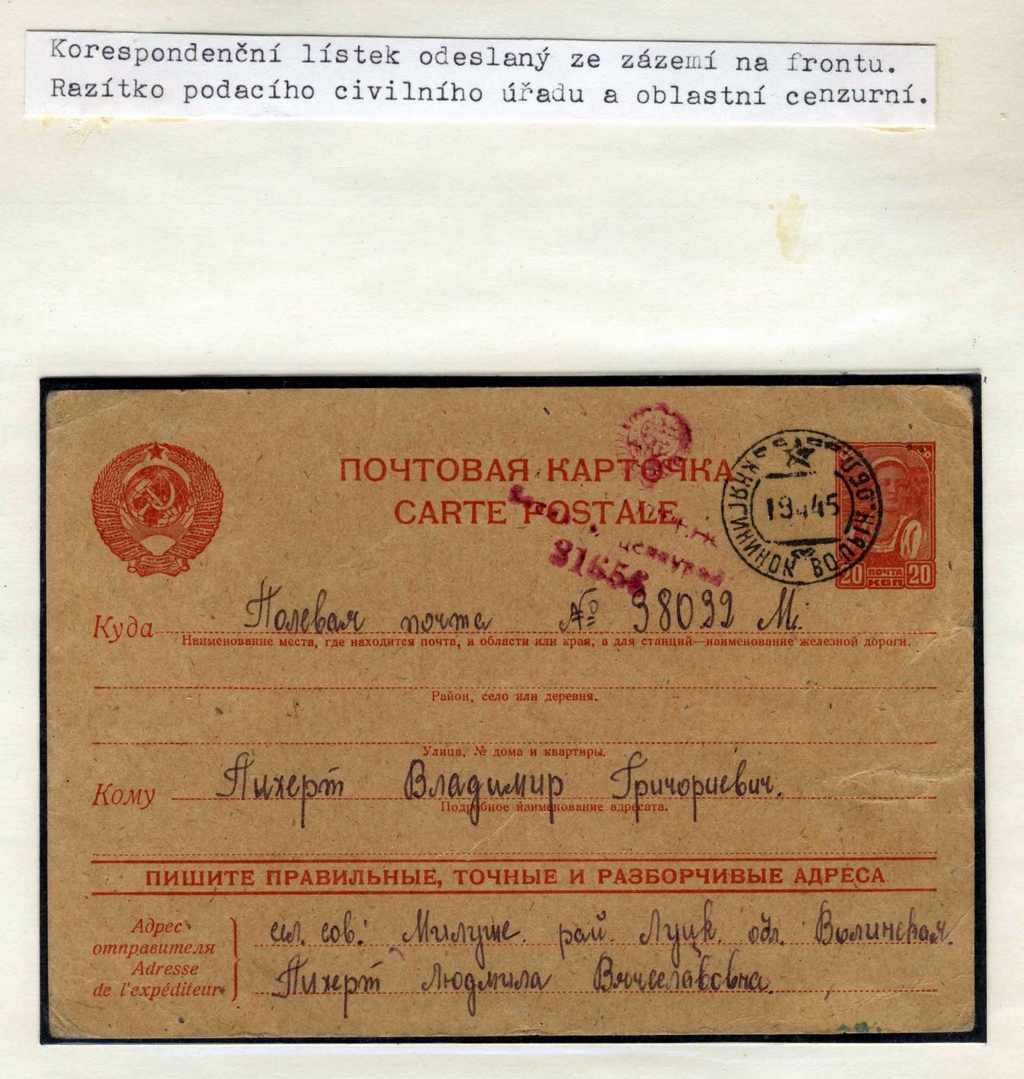 Korespondenční lístek odeslaný ze zázemí na frontu.
Razítko podacího civilního úřadu a oblastní cenzurní.
ПОЧТОВАЯ КАРТОЧКА
CARTE POSTALE
КНЯГИНИНОК ВОЛЫН. ОБЛ.
19 45
31656
20 ПОЧТА 20
КОП
Куда Полевая почта № 38092 М.
Наименование места, где находится почта, и области или края, а для станций—наименование железной дороги.
Район, село или деревня.
Улица, № дома и квартиры.
Кому Пихерт Владимир Григориевич.
Подробное наименование адресата.
ПИШИТЕ ПРАВИЛЬНЫЕ, ТОЧНЫЕ И РАЗБОРЧИВЫЕ АДРЕСА
Адрес
отправителя
Adresse
de l'expéditeur
сел. сов. Милуше. рай. Луцк. обл. Волинская.
Пихерт Людмила Вячеславовна.